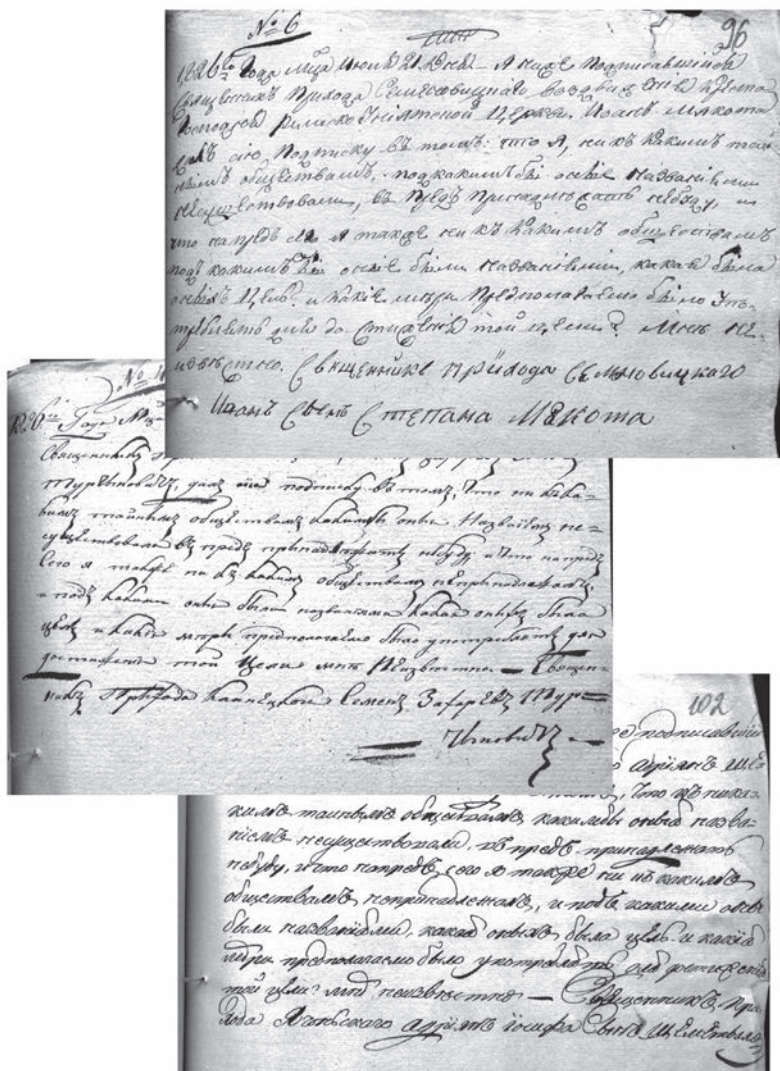 № 6
96
1826го Года мца Июля 21 дня — Я ниже Подписавшийся
Священникъ Прихода Семеховицкаго Воздвиженія Креста
Господня Римско Униятской Церкви Иоанъ Макота
далъ сію Подписку въ томъ: что я, ни къ какимъ тай
нымъ обществамъ, подкакимъ бы оные Названіемъ
несуществовали, въ предъ Принадлежать небуду, и
что напредъ сего я также ни къ какимъ обществамъ
подъ какимъ бы оные были Названіемъ, какая была
оныхъ Цель и какіе меры Предполагаемо было Упо-
треблять для достиженія той цели? Мне не-
известно. Священникъ прихода Семховицкаго
Иоанъ Сынъ Степана Макота
№ 1
1826го Года Мца
Священникъ
Турцыновичъ, далъ сію подписку въ томъ, Что ни къ ка-
кимъ тайнымъ обществамъ какимбы оные Названіемъ не-
существовали въ предъ принадлежать небуду, и Что напредъ
Сего я также ни къ какимъ обществамъ непринадлежалъ,
и подъ какими оные были названіями какая оныхъ была
цель и какіе меры предполагаемо было употреблять для
достиженія той Цели мне Неизвестно — Священ-
никъ Прихода Семенъ Захаревъ Тур-
Цыновичъ
102
подписавшійся
Адріанъ
, Что къ ника-
кимъ тайнымъ обществамъ, какимбы оные назва-
ніемъ несуществовали, въ предъ принадлежать
небуду, и что напредъ сего я также ни къ какимъ
обществамъ непринадлежалъ, и подъ какими оные
были названіями, какая оныхъ была цель и какія
меры предполагаемо было употреблять для достиженія
той цели? мне неизвестно — Священникъ При
хода Адріанъ Іосифа Сынъ